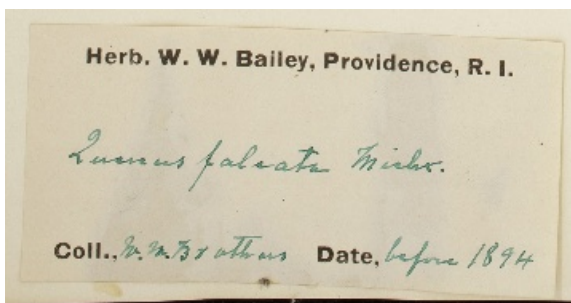 Herb. W. W. Bailey, Providence, R. I.
Quercus falcata Michx.
Coll., W. M. Brothers Date, before 1894